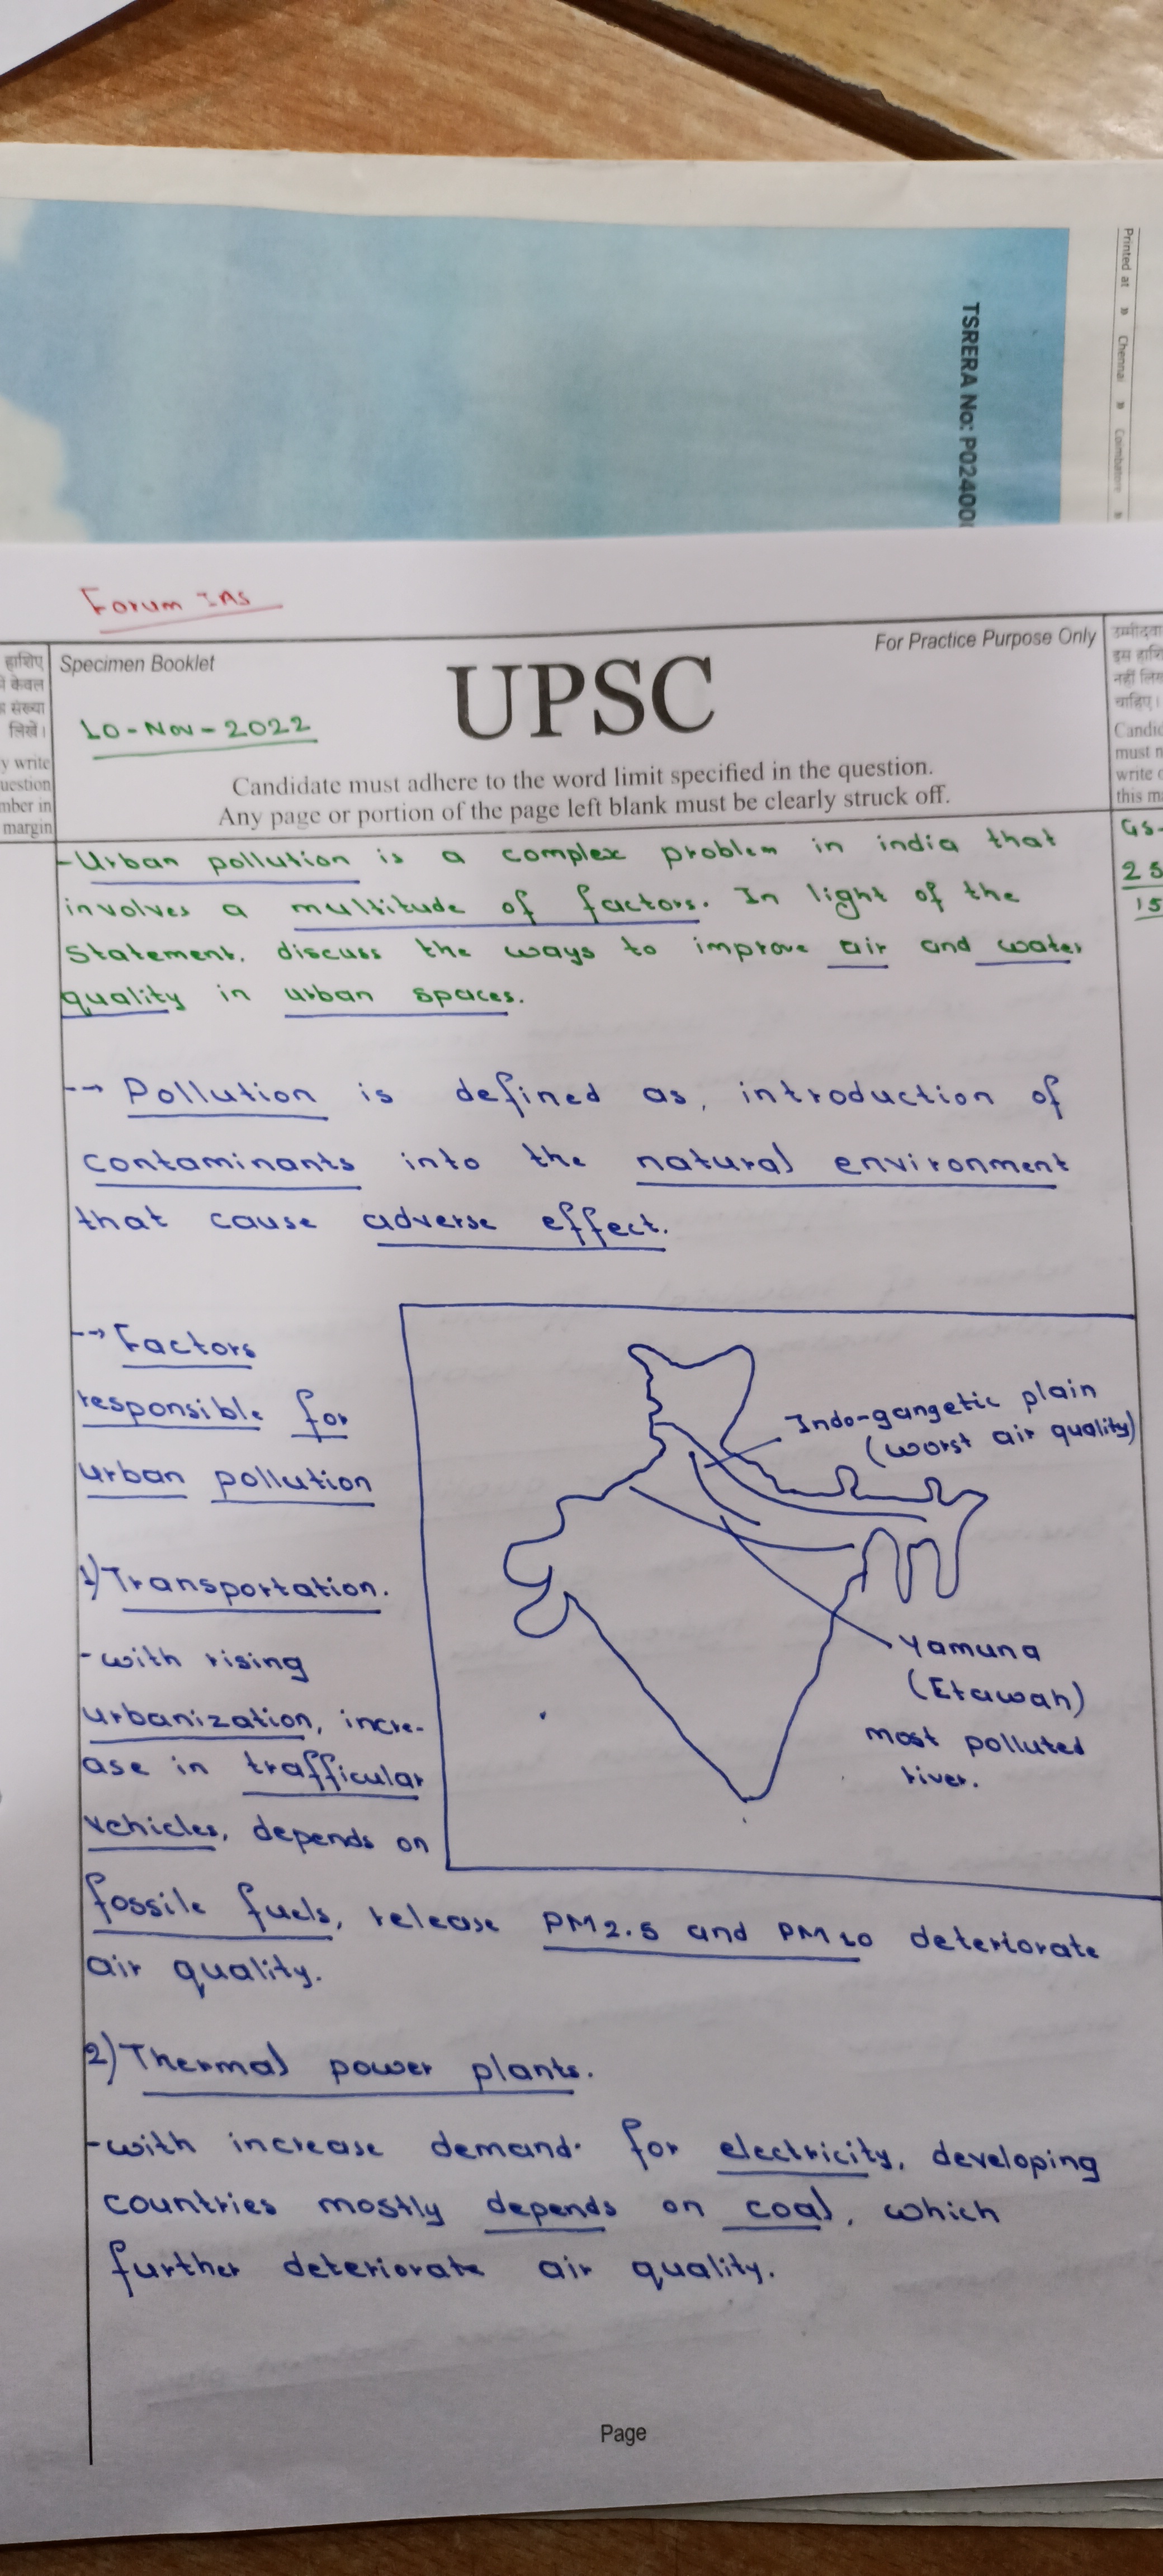 Printed at » Chennai » Coimbatore »
TSRERA No: P02400
Forum IAS
हाशिए
में केवल
संख्या
लिखें।
y write
uestion
mber in
margin
Specimen Booklet
For Practice Purpose Only
UPSC
10-Nov-2022
Candidate must adhere to the word limit specified in the question.
Any page or portion of the page left blank must be clearly struck off.
इस
नहीं
चाहिए।
Candid
must n
write
this m
GS-
25
15
-Urban pollution is a complex problem in india that
involves a multitude of factors. In light of the
Statement. discuss the ways to improve air and water
quality in urban spaces.
--> Pollution is defined as, introduction of
contaminants into the natural environment
that cause adverse effect.
--> Factors
responsible for
urban pollution
1) Transportation.
-with rising
urbanization, incre-
ase in trafficular
vehicles, depends on
fossile fuels, release PM2.5 and PM10 deteriorate
air quality.
Indo-gangetic plain
(worst air quality)
Yamuna
(Etawah)
most polluted
river.
2) Thermal power plants.
-with increase demand for electricity, developing
countries mostly depends on coal, which
further deteriorate air quality.
Page